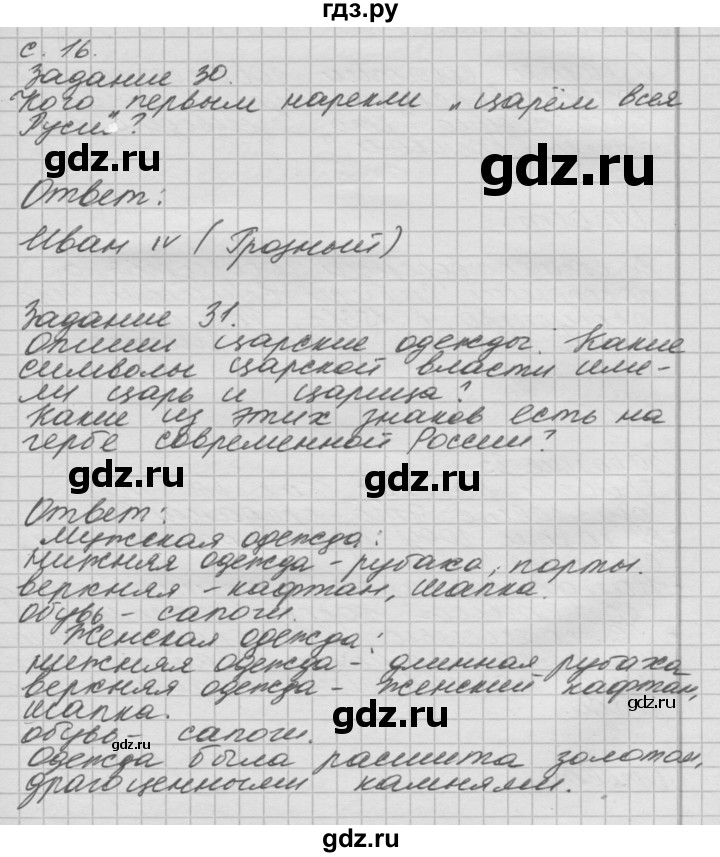 гдз.ру
с. 16.
Задание 30.
Кого первым нарекли „царём всея
Руси"?
gdz.ru gdz.ru
Ответ:
Иван IV (Грозный)
Задание 31.
Опиши царские одежды. Какие
символы царской власти име-
ли царь и царица?
Какие из этих знаков есть на
гербе современной России?
gdz.ru gdz.ru
Ответ:
Мужская одежда:
нижняя одежда - рубаха, порты.
верхняя - кафтан, шапка.
обувь - сапоги.
Женская одежда:
нижняя одежда - длинная рубаха
верхняя одежда - женский кафтан,
gdz.ru
шапка.
обувь - сапоги.
gdz.ru
Одежда была расшита золотом,
драгоценными камнями.
gdz.ru